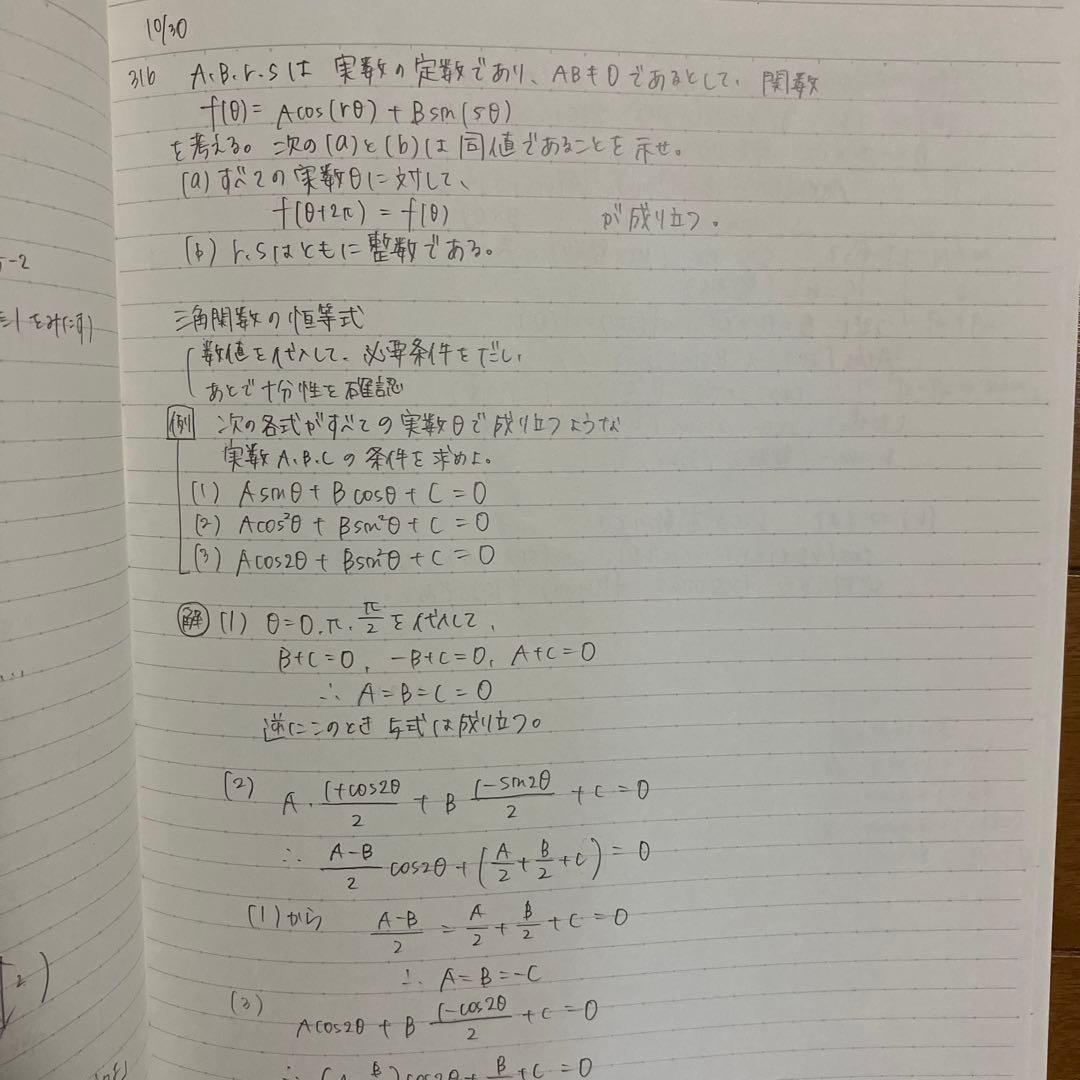 10/30
316 A,B,r,sは 実数の定数であり、AB≠0であるとして、関数
f(θ)= Acos(rθ) + Bsin(sθ)
を考える。次の(a)と(b)は同値であることを示せ。
(a) すべての実数θに対して、
f(θ+2π) = f(θ) が成り立つ。
(b) r,sはともに整数である。
三角関数の恒等式
数値を代入して、必要条件をだし、
あとで十分性を確認
例 次の各式がすべての実数θで成り立つような
実数A,B,Cの条件を求めよ。
(1) Asinθ + Bcosθ + C = 0
(2) Acos²θ + Bsin²θ + C = 0
(3) Acos2θ + Bsin²θ + C = 0
解 (1) θ=0,π,π/2を代入して、
B+C=0, -B+C=0, A+C=0
∴ A=B=C=0
逆にこのとき与式は成り立つ。
(2) A・(1+cos2θ)/2 + B (1-sin2θ)/2 + C = 0
∴ (A-B)/2 cos2θ + (A/2 + B/2 + C) = 0
(1)から (A-B)/2 = A/2 + B/2 + C = 0
∴ A=B=-C
(3)
Acos2θ + B (1-cos2θ)/2 + C = 0